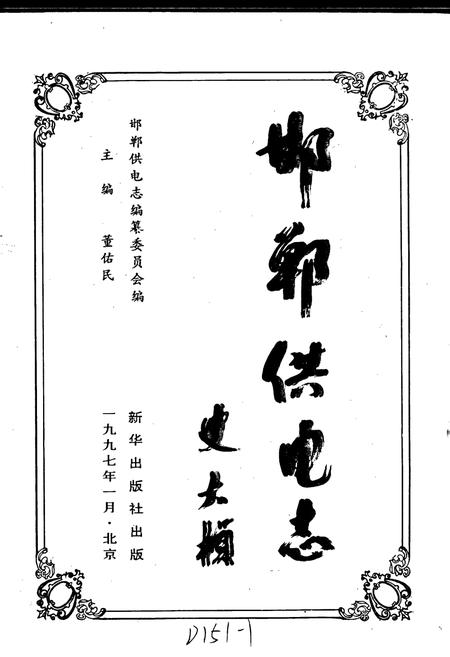 邯郸供电志
史大桢
邯郸供电志编纂委员会编
主编 董佑民
新华出版社出版
一九九七年一月·北京
D151-1